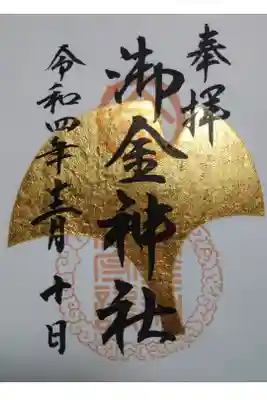 奉拝
御金神社
令和四年十二月十日